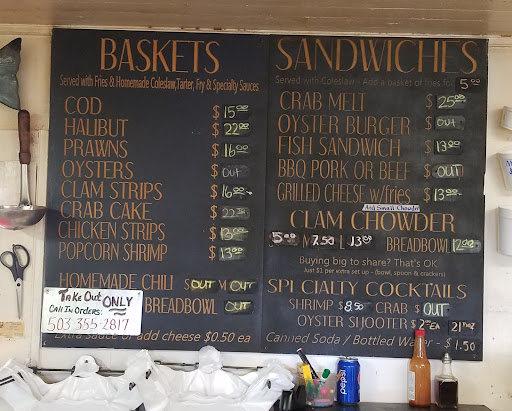 BASKETS
Served with Fries & Homemade Coleslaw, Tarter, Fry & Specialty Sauces
COD $15.00
HALIBUT $22.00
PRAWNS $16.00
OYSTERS $OUT
CLAM STRIPS $16.00
CRAB CAKE $
CHICKEN STRIPS $13.00
POPCORN SHRIMP $13.00
HOMEMADE CHILI SOUT M OUT
BREADBOWL OUT
Extra sauce or add cheese $0.50 ea
Take Out ONLY
CALL IN ORDERS:
503 355-2817
SANDWICHES
Served with Coleslaw - Add a basket of fries for 5.00
CRAB MELT $25.00
OYSTER BURGER $OUT
FISH SANDWICH $13.00
BBQ PORK OR BEEF $OUT
GRILLED CHEESE w/fries $13.00
And Small Chowder
CLAM CHOWDER
S M 7.50 L 13.00 BREADBOWL 12.00
Buying big to share? That's OK
Just $1 per extra set up - (bowl, spoon & crackers)
SPECIALTY COCKTAILS
SHRIMP $8.50 CRAB $OUT
OYSTER SHOOTER $2.00 EA
Canned Soda / Bottled Water - $1.50
pepsi